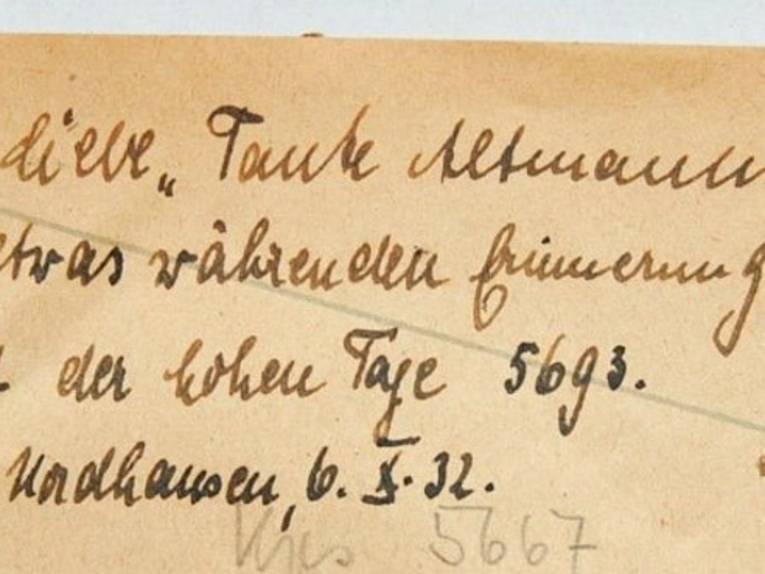 liebe „Tante Altmann
etwas währenden Erinnerung
der hohen Tage 5693.
Nordhausen, 6. X. 32.
5667